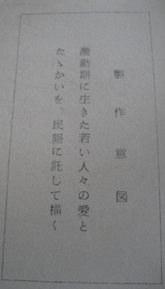 郭作霊図
激動期に生きた若い人々の愛と
たゝかいを、民謡に託して描く